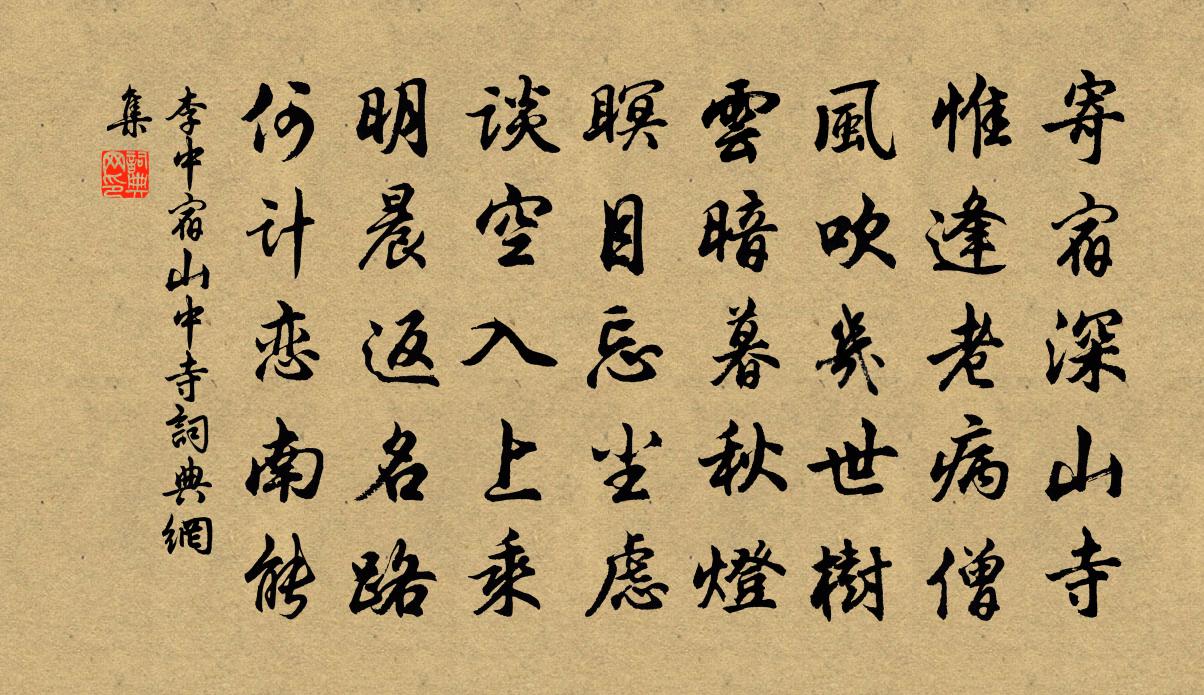 寄宿深山寺
惟逢老病僧
風吹幾世樹
雲暗暮秋燈
瞑目忘尘虑
谈空入上乘
明晨返名路
何计恋南能
李中宿山中寺詞典網
集
詞典网印